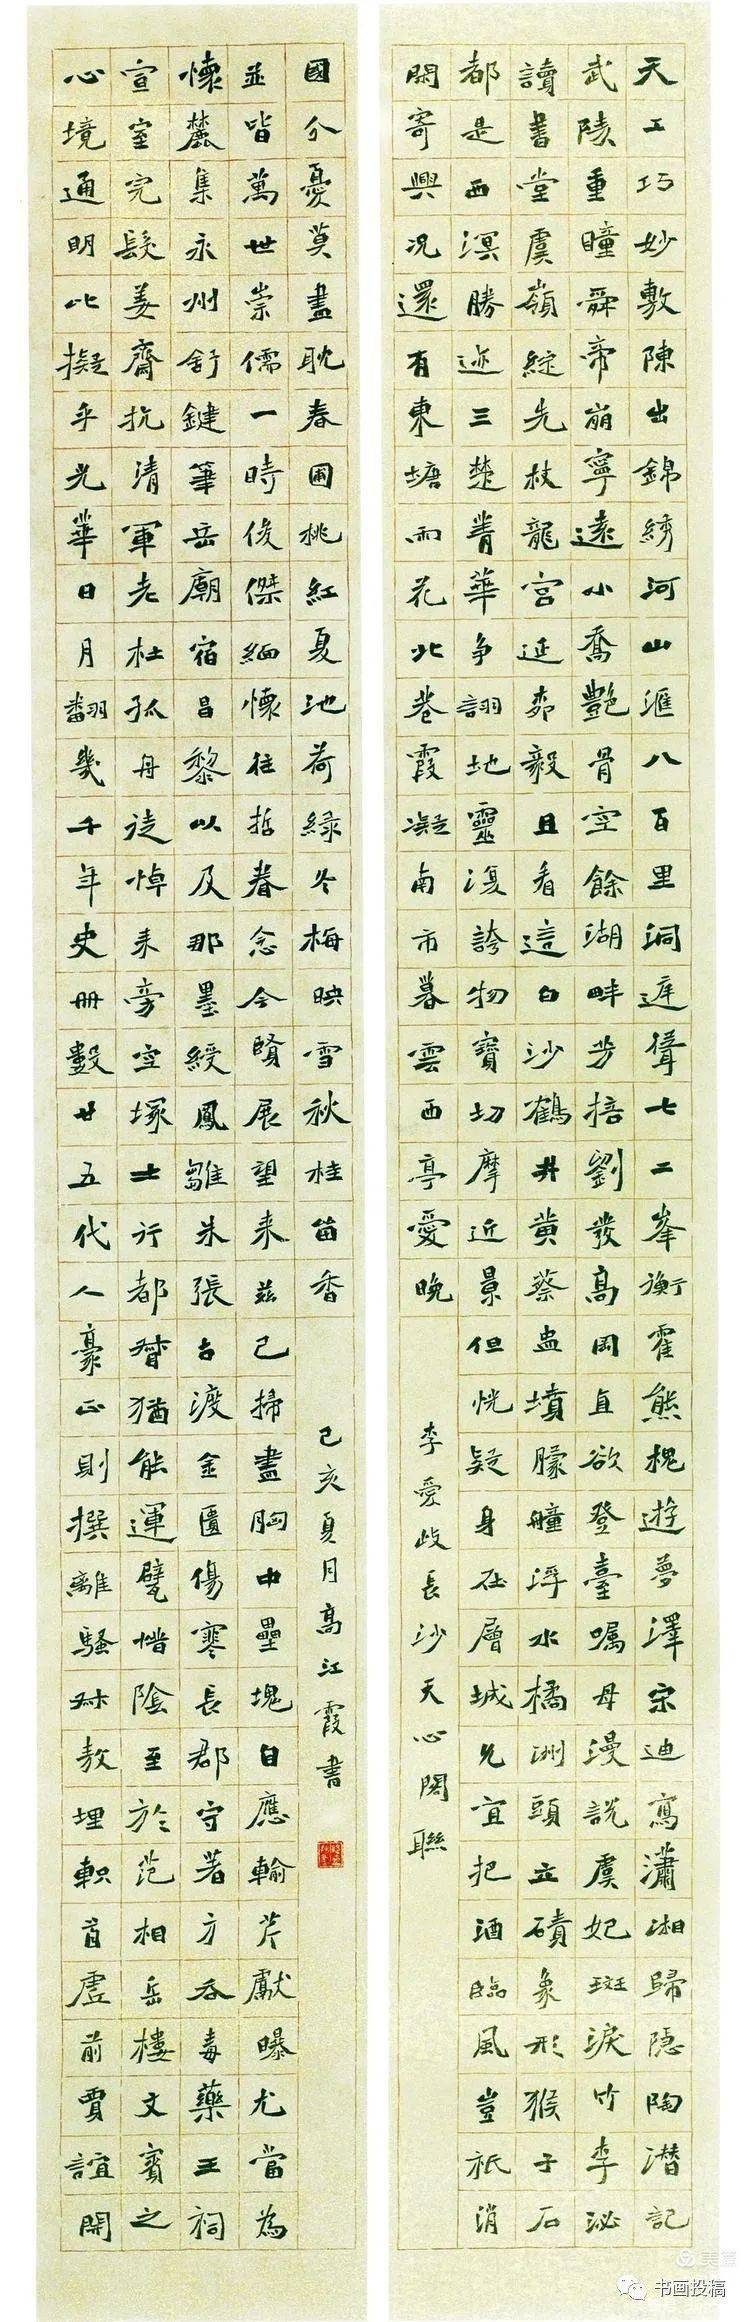 天工巧妙敷陳出錦綉河山滙八百里洞庭聳七二峯衡霍熊槐遊夢澤宋迪寫瀟湘歸隱陶潜記
武陵重瞳舜帝崩寧遠小喬艷骨空餘湖畔芳掊劉發高岡直欲登臺嘱母漫説虞妃斑淚竹李泌
讀書堂虞嶺綻先杖龍宮延毅且看這白沙鶴井黄蔡盅墳朦艟浮水橘洲頭立磧象形猴子石
都是西溟勝迹三楚菁華争詡地靈復誇物寶切摩近景但恍疑身在層城允宜把酒臨風豈祇消
閑寄興况還有東塘雨花北巷霞凝南市暮雲西亭愛晚
李愛歧長沙天心閣聯
心境通明比擬乎光華日月翻幾千年史册數廿五代人豪正則撰離騷叔敖埋軹首虚前賈誼開
宣室完髮姜齋抗清軍老杜孤舟徒悼耒旁空塚士行都督猶能運甓惜陰至於范相岳樓文賓之
懷麓集永州舒鍵筆岳廟宿昌黎以及那墨綬鳳雛朱張古渡金匱傷寒長郡守著方吞毒藥王祠
並皆萬世崇儒一時俊傑緬懷往哲眷念今賢展望来兹已掃盡胸中壘塊自應輸芹獻曝尤當為
國分憂莫盡耽春圃桃紅夏池荷緑冬梅映雪秋桂笛香
己亥夏月高江霞書
美篇
书画投稿